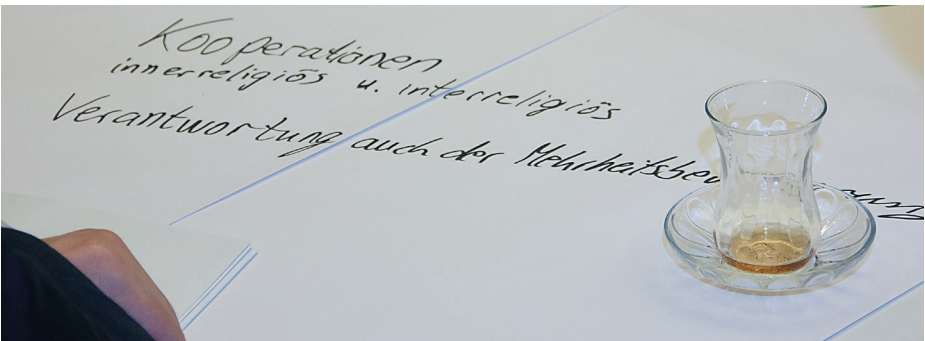 Kooperationen
innerreligiös u. interreligiös
Verantwortung auch der